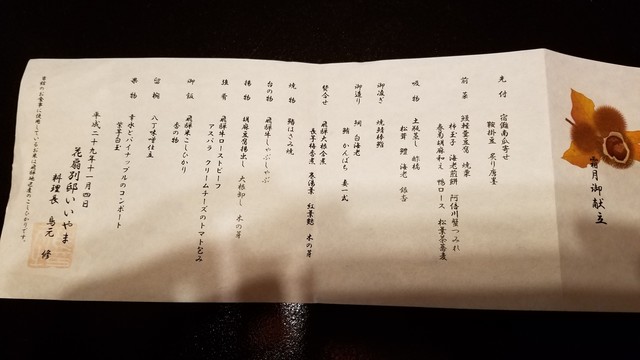 霜月御献立
先付 宿儺南瓜寄せ
鞍掛豆 炙り唐墨
前菜 焼栗
柿玉子 海老煎餅 阿倍川蟹つみれ
春菊胡麻和え 鴨ロース 松葉茶蕎麦
吸物 土瓶蒸し
松茸 鱧 海老 銀杏
御凌ぎ 焼鯖棒鮨
御造り 鯛 白海老
鮪 かんぱち 妻一式
焚合せ 飛騨大根含煮
紅葉麩 木の芽
焼物 鰆はさみ焼
台の物 飛騨牛しゃぶしゃぶ
揚物 胡麻豆腐揚出し 大根卸し 木の芽
強肴 飛騨牛ローストビーフ
アスパラ クリームチーズのトマト包み
御飯 飛騨米こしひかり
香の物
留椀 八丁味噌仕立
果物 幸水とパイナップルのコンポート
紫芋白玉
平成二十九年十一月四日
花扇別邸いいやま
料理長 島元 修
当館のお食事に使用しているお米は飛騨地元産のこしひかりです。